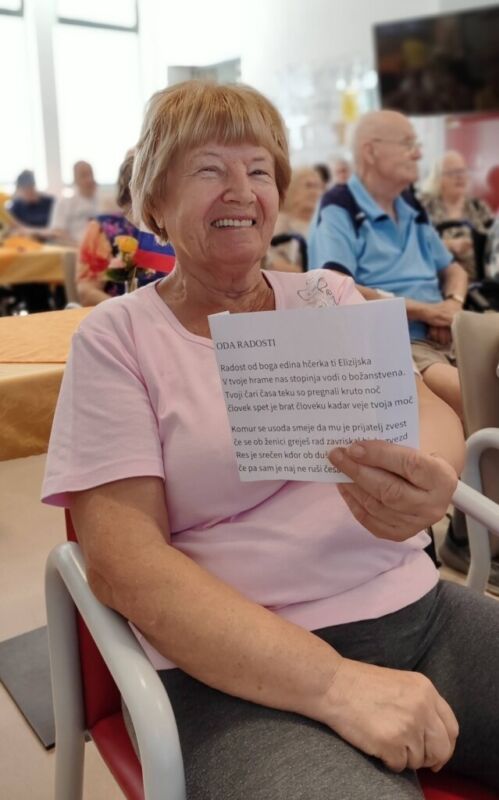 ODA RADOSTI
Radost od boga edina hčerka ti Elizijska
V tvoje hrame nas stopinja vodi o božanstvena.
Tvoji čari časa teku so pregnali kruto noč
človek spet je brat človeku kadar veje tvoja moč
Komur se usoda smeje da mu je prijatelj zvest
če se ob ženici greješ rad zavriskal
Res je srečen kdor ob
če pa sam je naj ne ruši